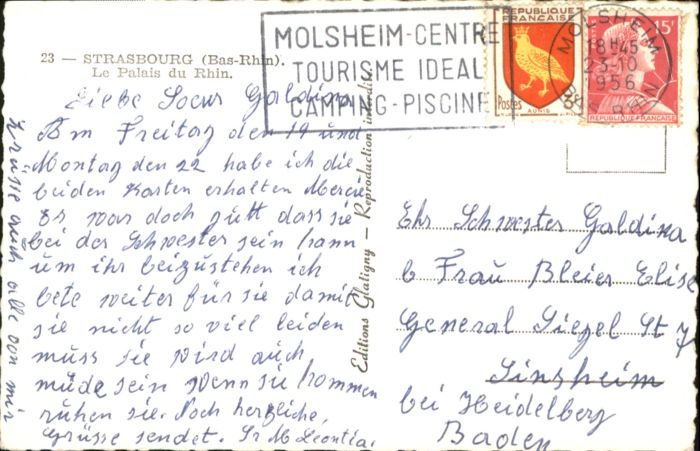 23 — STRASBOURG (Bas-Rhin).
Le Palais du Rhin.
MOLSHEIM-CENTRE
TOURISME IDEAL
CAMPING-PISCINE
REPUBLIQUE
FRANÇAISE
Postes
AUNIS
MOLSHEIM
18H45
23-10
1956
BAS RHIN
15F
REPUBLIQUE FRANÇAISE
Liebe Soeur Galdina
Am Freitag den 19 und
Montag den 22 habe ich die
beiden Karten erhalten Mercie
Es war doch gutt dass sie
bei der Schwester sein kann
um ihr beizustehen ich
bete weiter für sie damit
sie nicht so viel leiden
muss sie wird auch
müde sein wenn sie kommen
ruhen sie. Noch herzliche
Grüsse sendet. Sr M Leontia.
Grüsse auch alle von mir
Editions Glatigny — Reproduction interdite
Ehr Schwester Galdina
b Frau Bleier Elise
General Siegel St 7
Sinsheim
bei Heidelberg
Baden